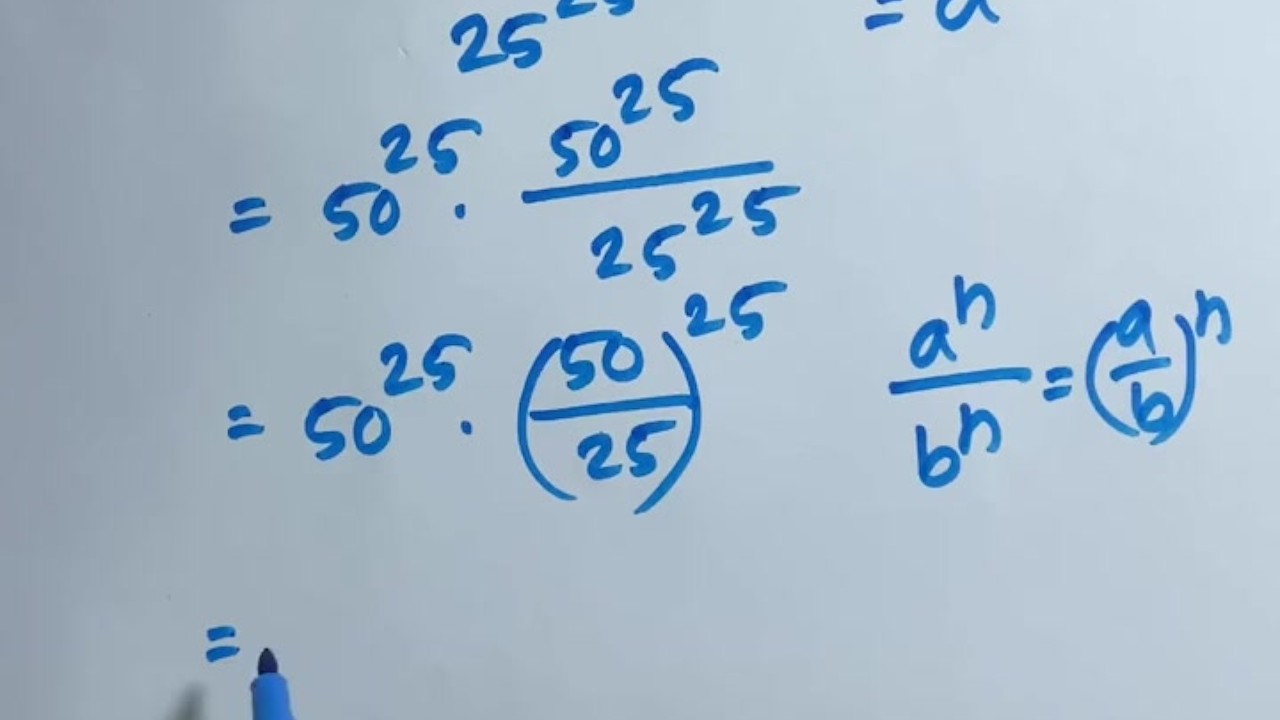 25²⁵ = a
= 50²⁵ · 50²⁵ / 25²⁵
= 50²⁵ · (50/25)²⁵ aⁿ / bⁿ = (a/b)ⁿ
=